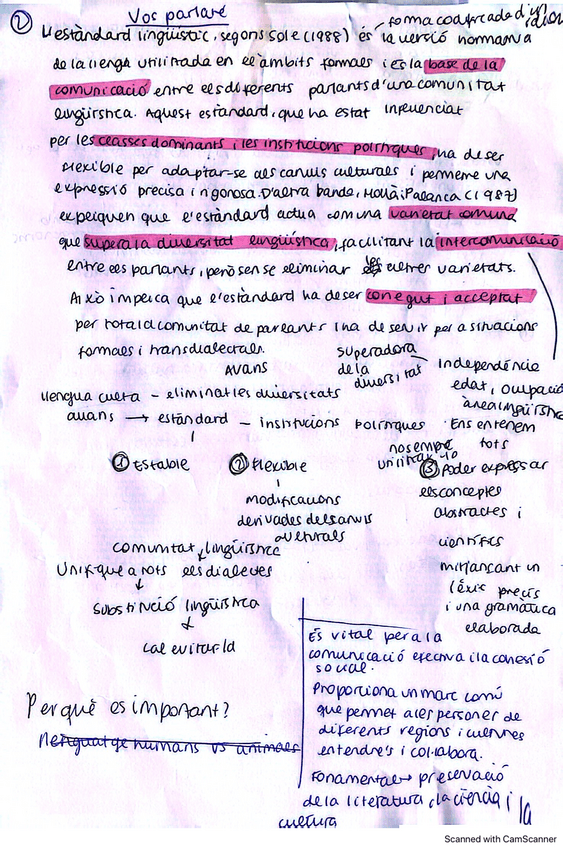 ② Vos parlaré
forma codificada d'un idioma
L'estàndard lingüístic, segons Solé (1988) és la versió normativa
de la llengua utilitzada en els àmbits formals i és la base de la
comunicació entre els diferents parlants d'una comunitat
lingüística. Aquest estàndard, que ha estat influenciat
per les classes dominants i les institucions polítiques, ha de ser
flexible per adaptar-se als canvis culturals i permetre una
expressió precisa i rigorosa. D'altra banda, Mollà i Palanca (1987)
expliquen que l'estàndard actua com una varietat comuna
que supera la diversitat lingüística, facilitant la intercomunicació
entre els parlants, però sense eliminar les altres varietats.
Això implica que l'estàndard ha de ser conegut i acceptat
per tota la comunitat de parlants i ha de servir per a situacions
formals i transdialectals.
superadora de la diversitat
Independència edat, ocupació, àrea lingüística
Ens entenem tots
AVANS
llengua culta - eliminat les diversitats
avans → estàndard - institucions polítiques
no sempre
① Estable
② Flexible
modificacions
derivades dels canvis
culturals
③ Poder expressar
els conceptes
abstractes i
científics
mitjançant un
lèxic precís
i una gramàtica
elaborada
comunitat lingüística
Unifique a tots els dialectes
↓
Substitució lingüística
↓
cal evitar-la
Per què és important?
llenguatge humans vs animals
És vital per a la
comunicació efectiva i la cohesió
social.
Proporciona un marc comú
que permet a les persones de
diferents regions i cultures
entendre's i col·laborar.
Fonamental → preservació
de la literatura, la ciència i la
cultura
Scanned with CamScanner